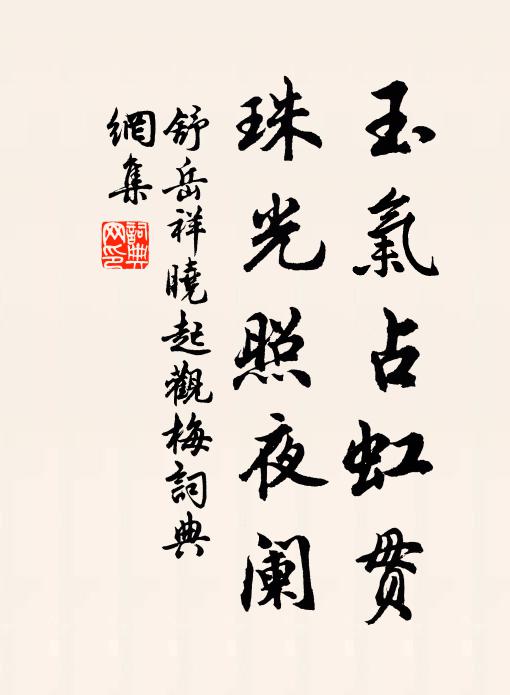 玉氣占虹贯
珠光照夜阑
舒岳祥曉起觀梅詞典
網集
詞典
网印